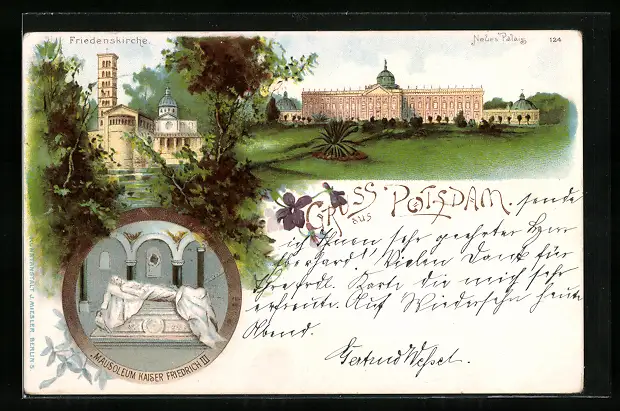 Friedenskirche.
Neues Palais
124
GRUSS aus POTSDAM.
sende
ich Ihnen sehr geehrter Herr
! Vielen Dank für
Ihre frdl. Karte die mich sehr
erfreute. Auf Wiedersehn heute
Abend.
Gertrud Wessel.
MAUSOLEUM KAISER FRIEDRICH III
KUNSTANSTALT J. MIESLER, BERLIN S.